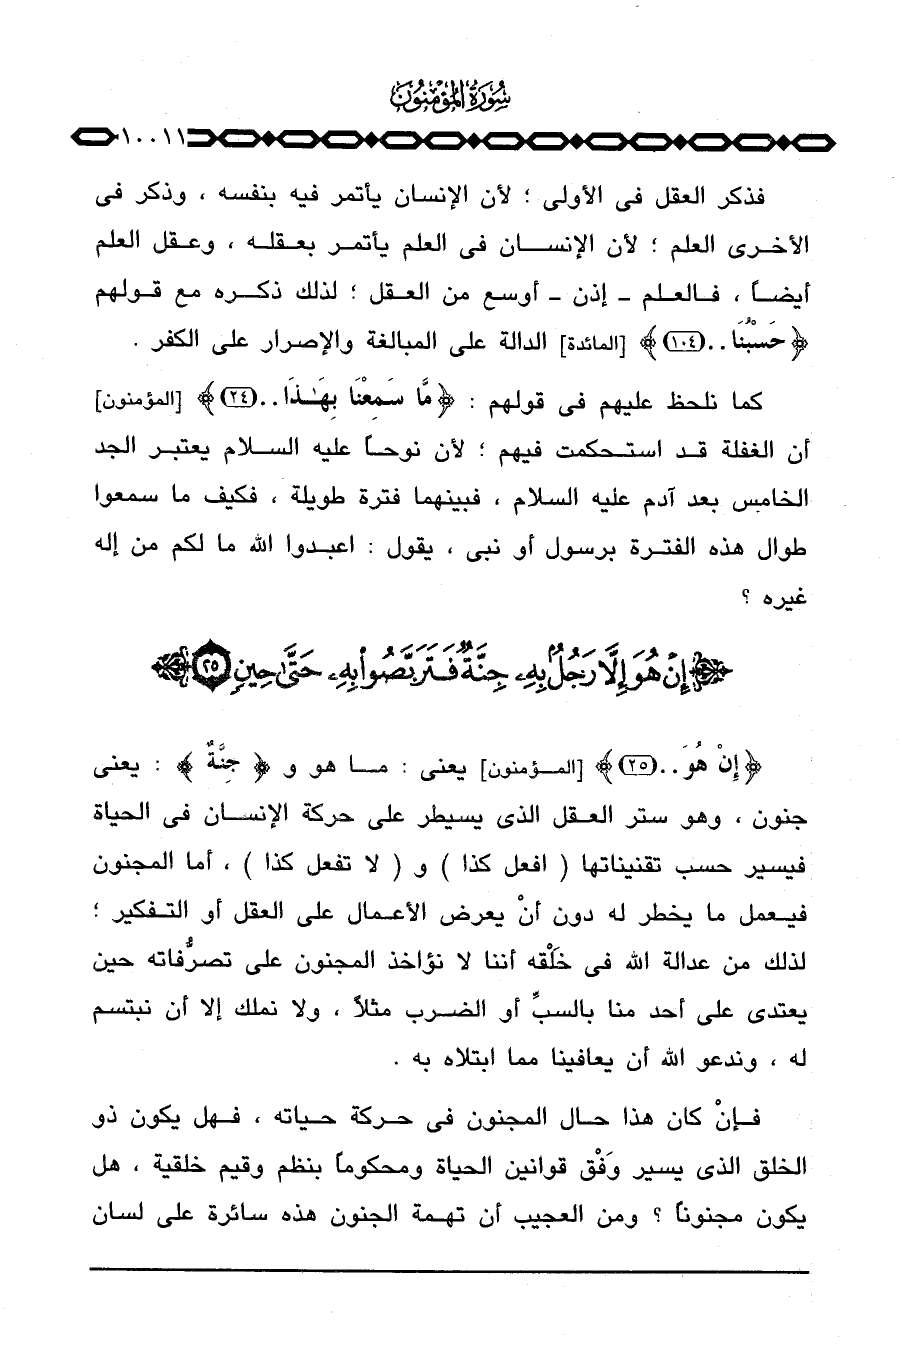 سُورَةُ المُؤْمِنُونَ
١٠٠١١
فذكر العقل فى الأولى ؛ لأن الإنسان يأتمر فيه بنفسه ، وذكر فى
الأخرى العلم ؛ لأن الإنسان فى العلم يأتمر بعقله ، وعقل العلم
أيضاً ، فالعلم - إذن - أوسع من العقل ؛ لذلك ذكره مع قولهم
﴿ حَسْبُنَا .. (١٠٤) ﴾ [المائدة] الدالة على المبالغة والإصرار على الكفر .
كما نلحظ عليهم فى قولهم : ﴿ مَّا سَمِعْنَا بِهَـٰذَا .. (٢٤) ﴾ [المؤمنون]
أن الغفلة قد استحكمت فيهم ؛ لأن نوحاً عليه السلام يعتبر الجد
الخامس بعد آدم عليه السلام ، فبينهما فترة طويلة ، فكيف ما سمعوا
طوال هذه الفترة برسول أو نبى ، يقول : اعبدوا الله ما لكم من إله
غيره ؟
﴿ إِنْ هُوَ إِلَّا رَجُلٌ بِهِ جِنَّةٌ فَتَرَبَّصُوا بِهِ حَتَّىٰ حِينٍ ٢٥ ﴾
﴿ إِنْ هُوَ .. (٢٥) ﴾ [المؤمنون] يعنى : ما هو و ﴿ جِنَّةٌ ﴾ : يعنى
جنون ، وهو ستر العقل الذى يسيطر على حركة الإنسان فى الحياة
فيسير حسب تقنيناتها ( افعل كذا ) و ( لا تفعل كذا ) ، أما المجنون
فيعمل ما يخطر له دون أنْ يعرض الأعمال على العقل أو التفكير ؛
لذلك من عدالة الله فى خَلْقه أننا لا نؤاخذ المجنون على تصرُّفاته حين
يعتدى على أحد منا بالسبِّ أو الضرب مثلاً ، ولا نملك إلا أن نبتسم
له ، وندعو الله أن يعافينا مما ابتلاه به .
فإنْ كان هذا حال المجنون فى حركة حياته ، فهل يكون ذو
الخلق الذى يسير وَفْق قوانين الحياة ومحكوماً بنظم وقيم خلقية ، هل
يكون مجنوناً ؟ ومن العجيب أن تهمة الجنون هذه سائرة على لسان